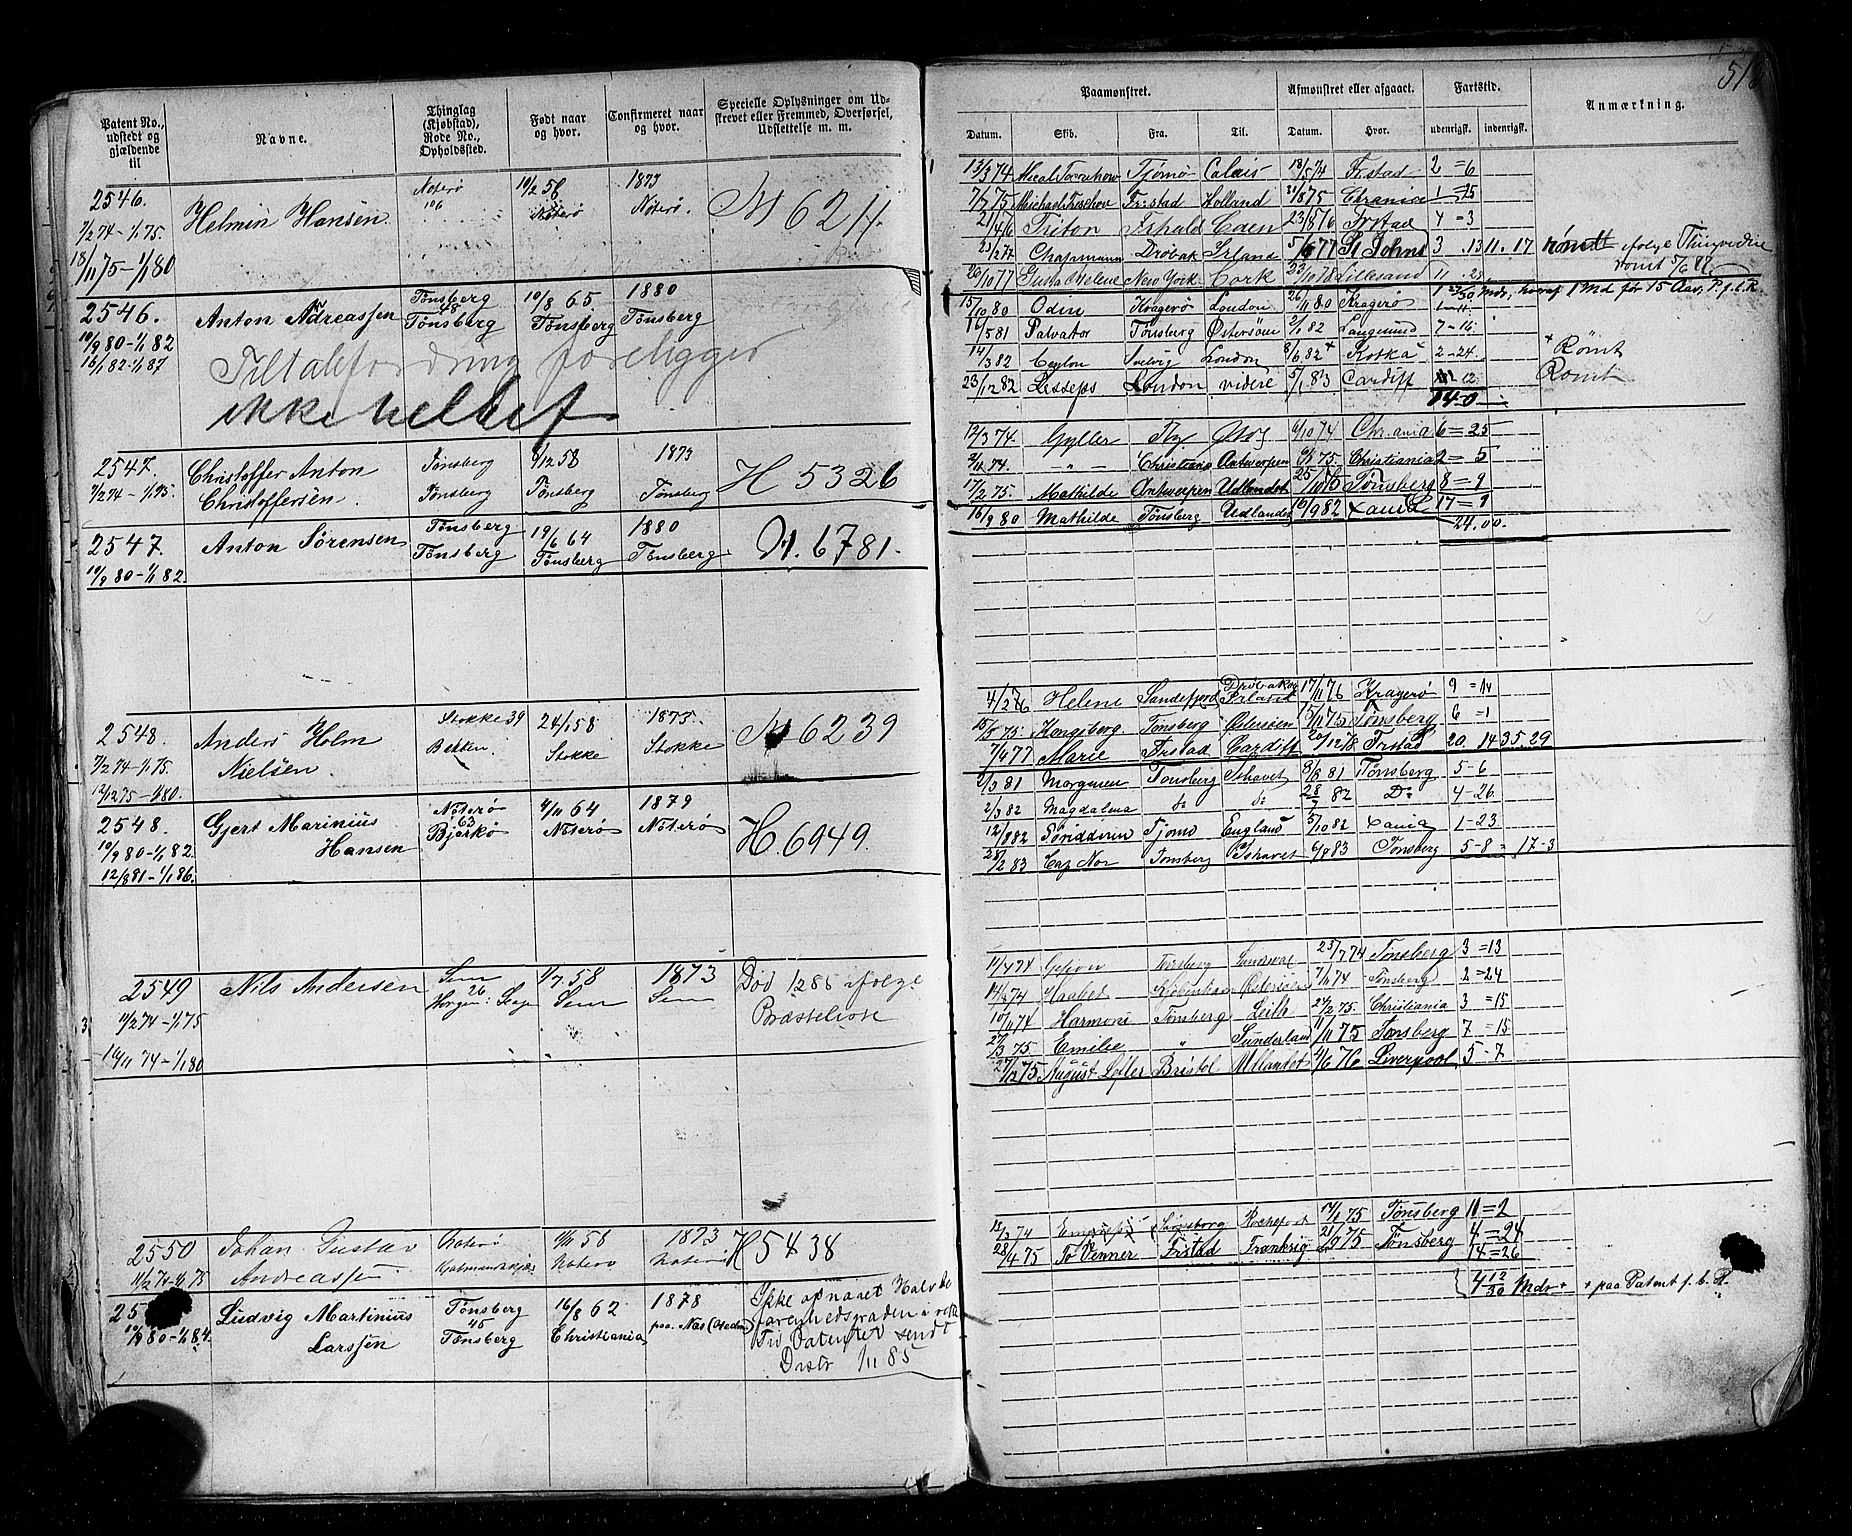 Patent No., udstedt og gjældende til
Navne.
Thinglag (Kjøbstad), Rode No., Opholdssted.
Født naar og hvor.
Confirmeret naar og hvor.
Specielle Oplysninger om Udskrevet eller Fremmed, Overførsel, Udslettelse m. m.
2546. Helmin Hansen Nøterø 106 Nøterø 1873 Nøterø. M 6211.
7/2 74 - 1/1 75.
18/11 75 - 1/1 80
2546. Anton Andreassen Tønsberg 48 Tønsberg 10/8 65 Tønsberg 1880 Tønsberg
10/9 80 - 1/1 82
16/1 82 - 1/1 87
Tiltalefordring foreligger
ikke
2547. Christoffer Anton Christoffersen. Tønsberg Tønsberg 9/12 58 Tønsberg 1873 Tønsberg H 5326
7/2 74 - 1/1 75.
2547. Anton Sørensen Tønsberg Tønsberg 19/6 64 Tønsberg 1880 Tønsberg M. 6781.
10/9 80 - 1/1 82
2548. Anders Holm Nielsen. Stokke 39 Bakken. 24/1 58 Stokke 1873. Stokke M 6239
7/2 74 - 1/1 75.
12/12 75 - 1/1 80.
2548. Gjert Marinius Hansen Nøterø 63 Bjerkø 4/11 64 Nøterø 1879 Nøterø H. 6949.
10/9 80 - 1/1 82.
12/8 81 - 1/1 86.
2549 Nils Andersen Sem 26 1/7 58 Sem 1873 Sem Død 1285 ifølge Præsteliste
11/2 74 - 1/1 75
10/11 74 - 1/1 80
2550 Johan Gustav Andreassen Nøterø 58 Nøterø 1873 Nøterø H 5438
11/2 74 - 1/1 75
25 Ludvig Martinius Larssen Tønsberg 45 Tønsberg 16/8 62 Christiania 1878 paa Næs Ikke opnaaet Halvbefarenhedsgraden
80 - 1/1 84. Patentet sendt Distr 1/11 85
518
Paamønstret.
Afmønstret eller afgaaet.
Fartstid.
Anmærkning.
Datum. Skib. Fra. Til. Datum. Hvor. udenrigsk. indenrigsk.
13/3 74 Tjømø Calais 18/5 74 Frstad 2 = 6
7/7 75 Frstad Holland 31/8 75 Chrania 1 = 25
21/4 76 Triton Fshald Caen 23/8 76 Frstad 4 - 3
23/2 77 Chapmann Drøbak Irland 5/6 77 St Johns 3 . 13 11. 17 rømt ifølge
20/10 77 Gusta Helene New York Cork 23/10 78 Lillesand 11 . 28
15/10 80 Odin Kragerø London 26/11 80 Kragerø 1 - 11
16/5 81 Salvator Tønsberg Østersøen 2/1 82 Langesund 7 - 16
14/3 82 Ceylon Svelvig London 8/6 82 + Kotka 2 - 24 + Rømt
23/12 82 Lesseps London videre 5/1 83 Cardiff 12 Rømt
14 0
12/3 74 Gyller Chr.ania 6 = 25
2/11 74. - " - Christiania Antwerpen 75 Christiania 2 = 5
17/2 75. Mathilde Antwerpen Udlandet 25/10 76 Tønsberg 8 = 9
16/9 80 Mathilde Tønsberg Udlandet 10/9 82 17 = 9
24.00.
4/2 76 Helene Sandefjord Drøbak og Irland 17/11 76 Kragerø 9 = 14
15/5 75. Kongsberg Tønsberg Østersøen 15/11 75 Tønsberg 6 = 1
7/4 77 Marie Frstad Cardiff 20/12 78 Frstad 20. 14 35. 29
81 Morgenen Tønsberg Ishavet 8/8 81 Tønsberg 5 - 6
2/3 82 Magdalena do do 28/7 82 Do 4 - 26
12/8 82 Tjømø England 5/10 82 Xania 1 - 23
28/2 83 Cap Nor Tønsberg Ishavet 6/8 83 Tønsberg 5 - 8 = 17 - 3
11/4 74 Gefion Tønsberg Sundsval 23/7 74 Tønsberg 3 = 13
14/8 74 Haabet Kjøbenhavn Østersøen 7/11 74 Tønsberg 2 = 24
10/11 74 Harmoni Tønsberg Leith 24/2 75. Christiania 3 = 15
27/3 75 Emilie " Sunderland 11/11 75 Tønsberg 7 = 15
27/12 75 August Lefler Bristol Udlandet 4/6 76 Liverpool 5 - 7
12/3 74 Rochefort 14/1 75 Tønsberg 10 = 2
28/4 75 To Venner Frstad Frankrig 21/9 75 Tønsberg 4 = 24
14 = 26
4 12/30 Mdr + + paa Patent f. b. R.